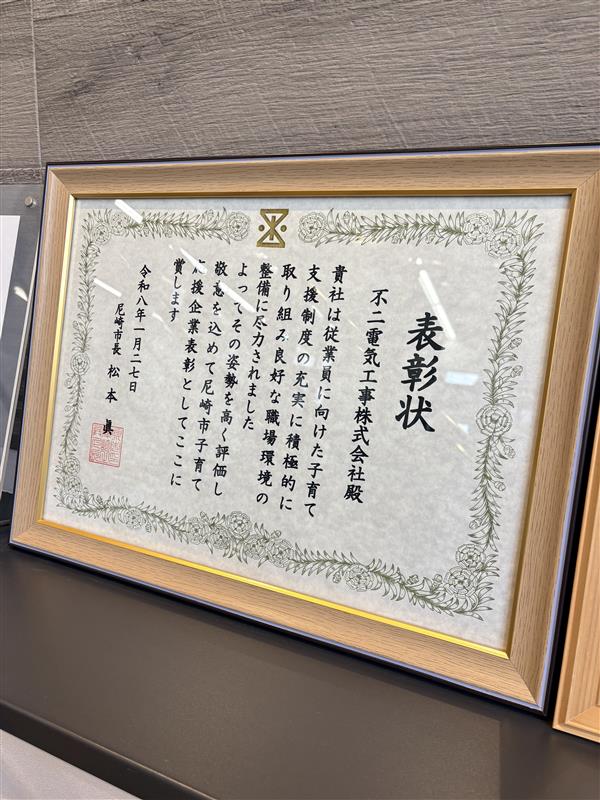 表彰状
不二電気工事株式会社殿
貴社は従業員に向けた子育て
支援制度の充実に積極的に
取り組み良好な職場環境の
整備に尽力されました
よってその姿勢を高く評価し
敬意を込めて尼崎市子育て
応援企業表彰としてここに
賞します
令和八年一月二七日
尼崎市長 松本眞